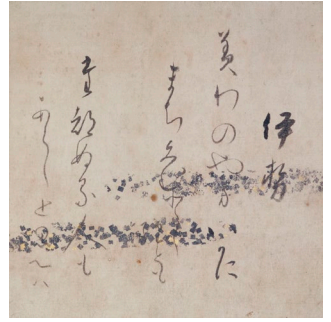 伊勢
美わのやまいかに
まちみむとしふとも
堂つぬる人も
あらしと思へハ